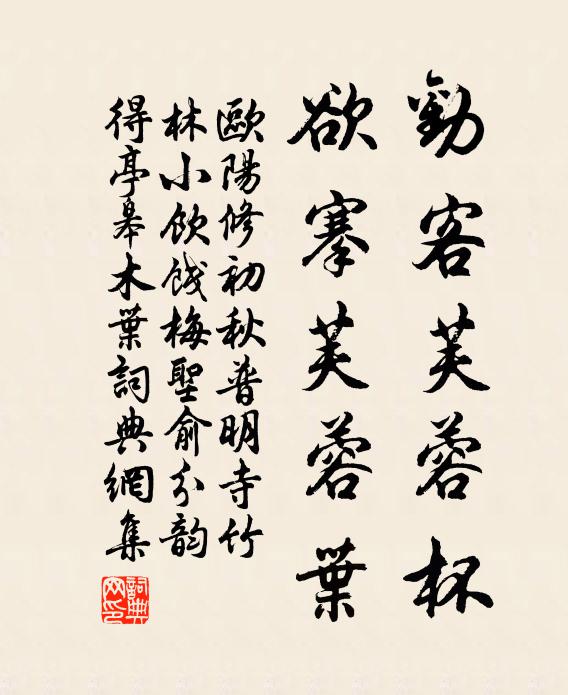 勸客芙蓉杯
欲搴芙蓉葉
歐陽修初秋普明寺竹
林小飲餞梅聖俞分韵
得亭皋木葉詞典網集
詞典
网印